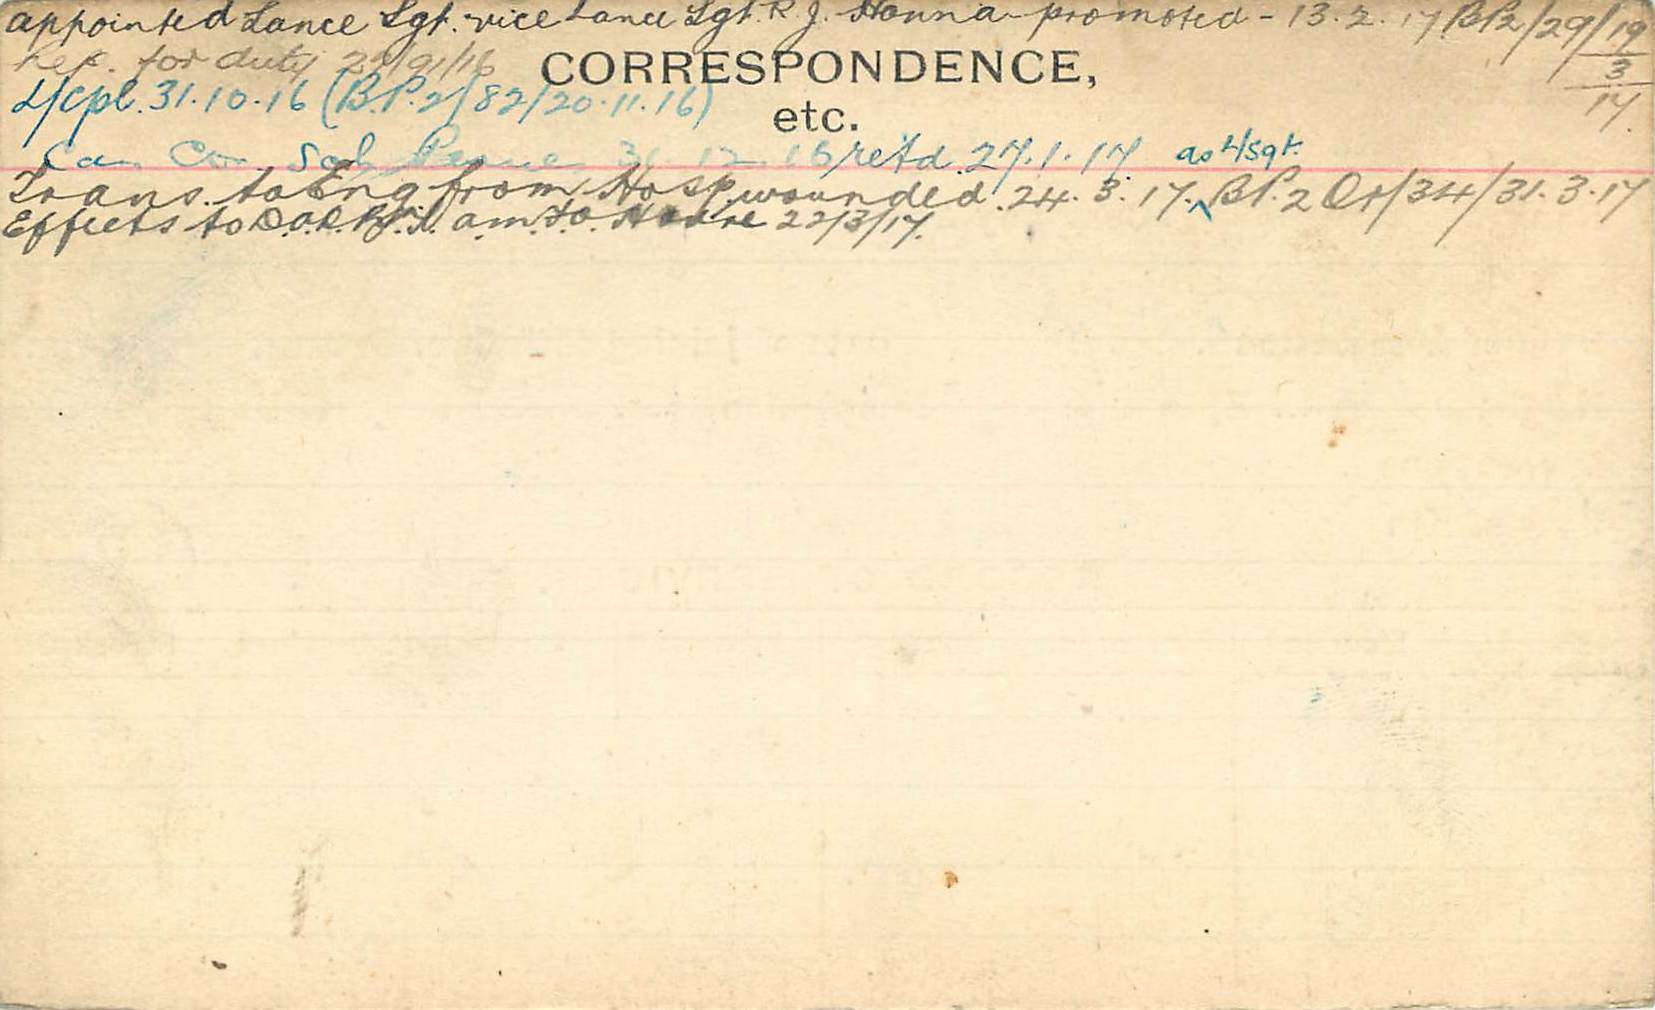 appointed Lance Sgt. vice Lance Sgt. R. J. Hanna promoted - 13.2.17 BP2/29/19/3/17.
Rep. for duty 29/9/16
CORRESPONDENCE,
L/Cpl. 31.10.16 (B.P.2/82/20.11.16)
etc.
Can Cor. Sch. 31.12.16 retd. 27.1.17. as L/Sgt.
Trans. to Eng from Hosp. wounded. 24.3.17. BP.2 Or/34/31.3.17
Effects to 22/3/17.